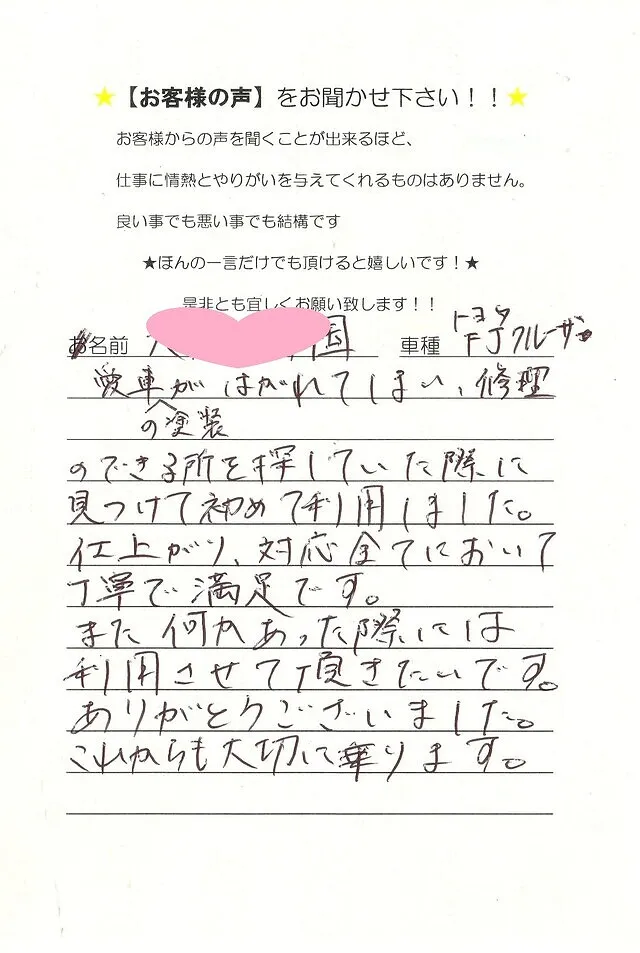 ★【お客様の声】をお聞かせ下さい！！★
お客様からの声を聞くことが出来るほど、
仕事に情熱とやりがいを与えてくれるものはありません。
良い事でも悪い事でも結構です
★ほんの一言だけでも頂けると嬉しいです！★
是非とも宜しくお願い致します！！
お名前 国 車種 トヨタ FJクルーザー
愛車がはがれてしまい、修理
の塗装
のできる所を探していた際に
見つけて初めて利用しました。
仕上がり、対応全てにおいて
丁寧で満足です。
また何かあった際には
利用させて頂きたいです。
ありがとうございました。
これからも大切に乗ります。